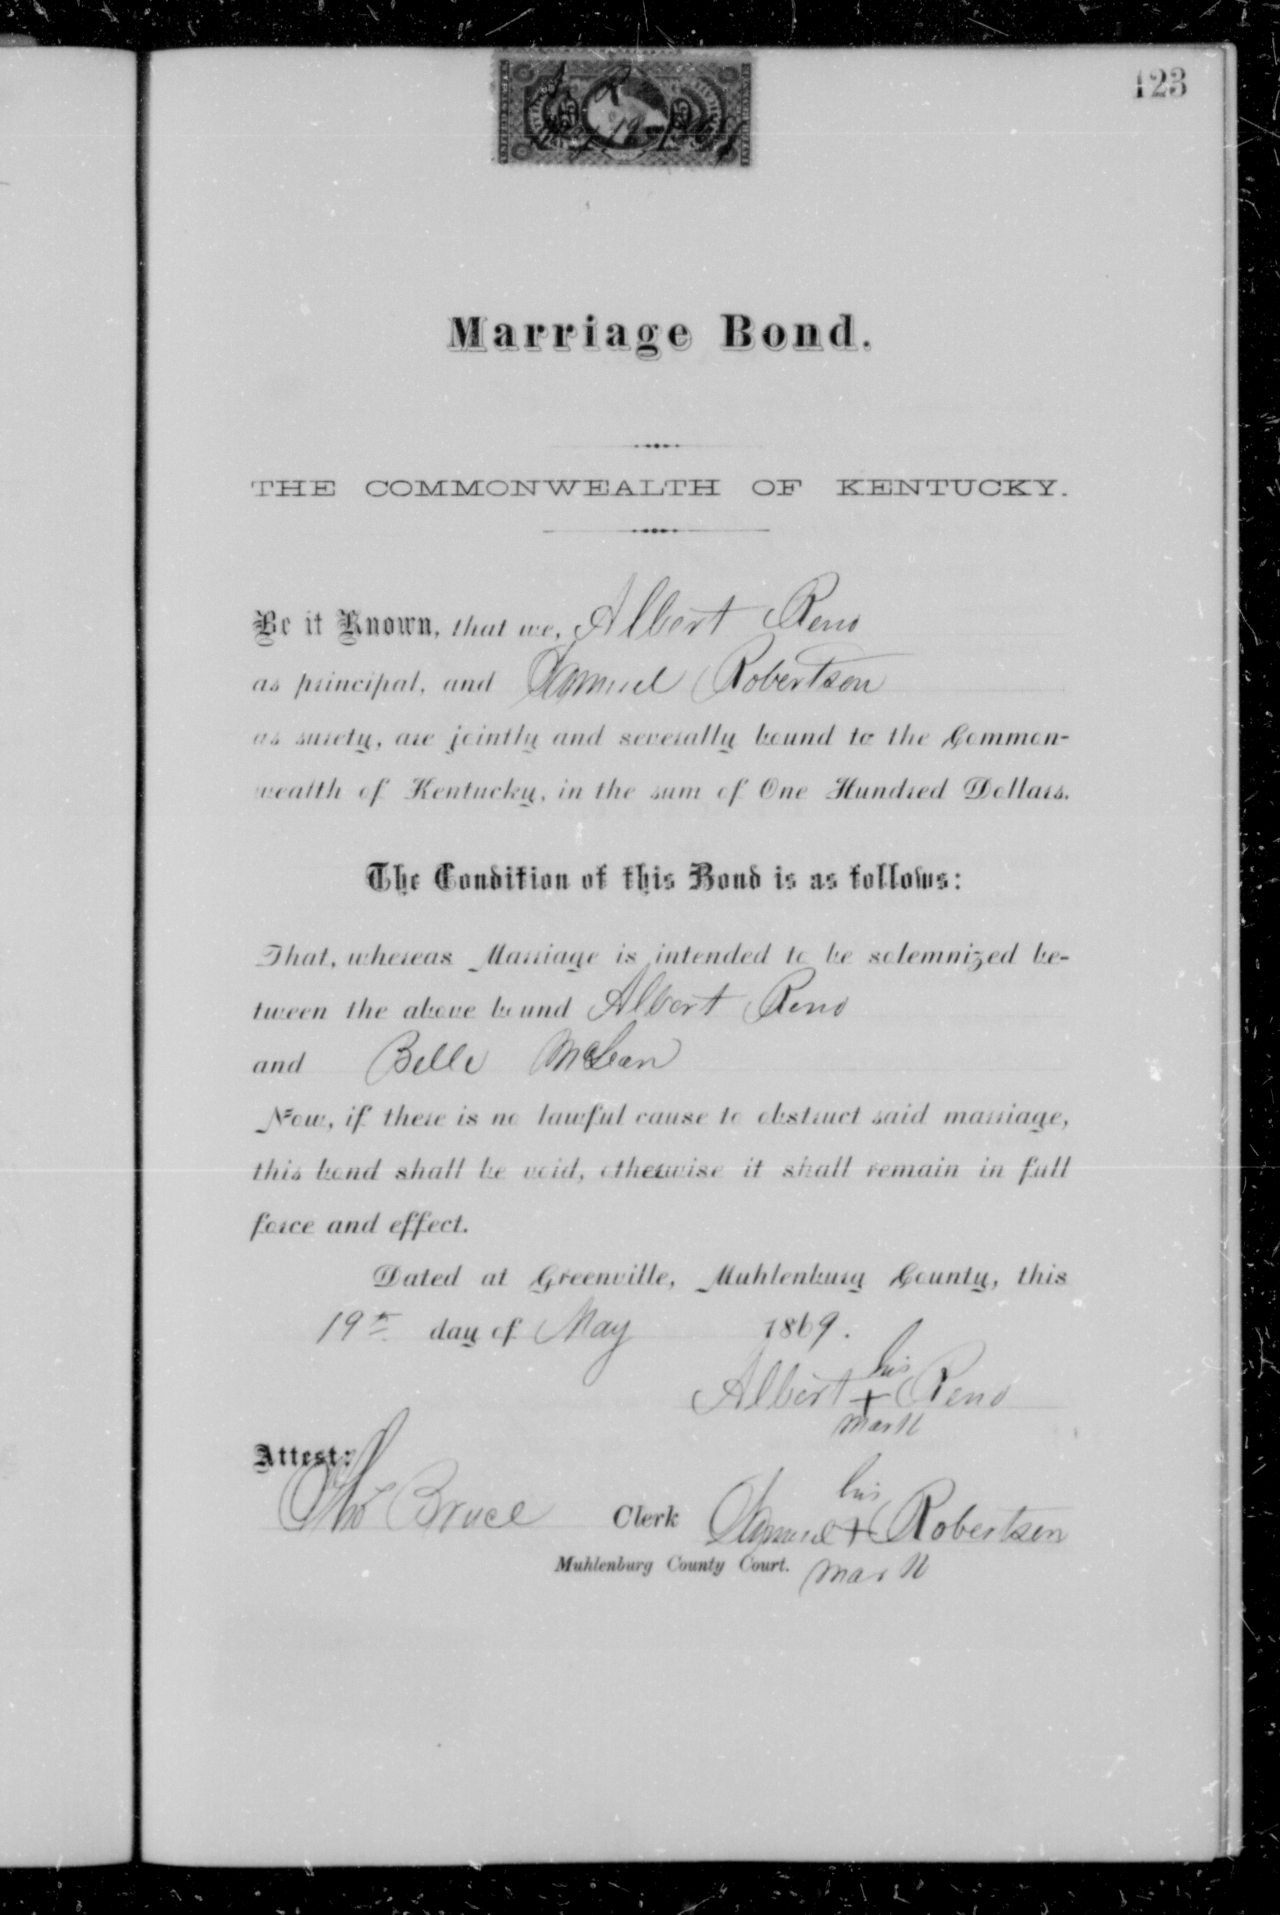 123
Marriage Bond.
THE COMMONWEALTH OF KENTUCKY.
Be it Known, that we, Albert Reno
as principal, and Samuel Robertson
as surety, are jointly and severally bound to the Common-
wealth of Kentucky, in the sum of One Hundred Dollars.
The Condition of this Bond is as follows:
That, whereas Marriage is intended to be solemnized be-
tween the above bound Albert Reno
and Belle McLean
Now, if there is no lawful cause to obstruct said marriage,
this bond shall be void, otherwise it shall remain in full
force and effect.
Dated at Greenville, Muhlenburg County, this
19th day of May 1869.
his
Albert + Reno
mark
Attest:
Tho Bruce Clerk
Muhlenburg County Court.
his
Samuel + Robertson
mark